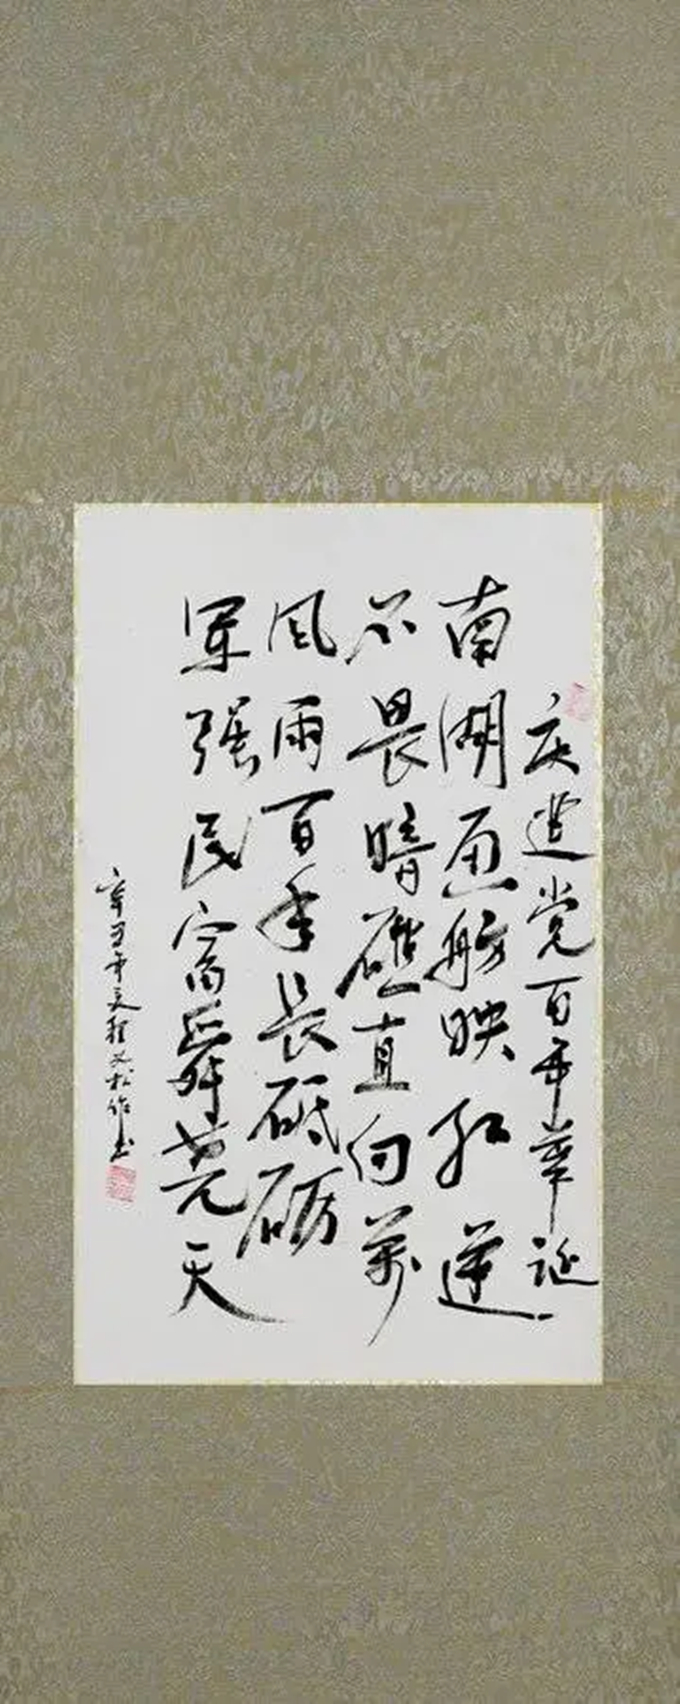 庆建党百年華诞
南湖画舫映红蓮
不畏暗礁直向前
风雨百年長砥砺
軍强民富舜尧天
辛丑年夏程松作书